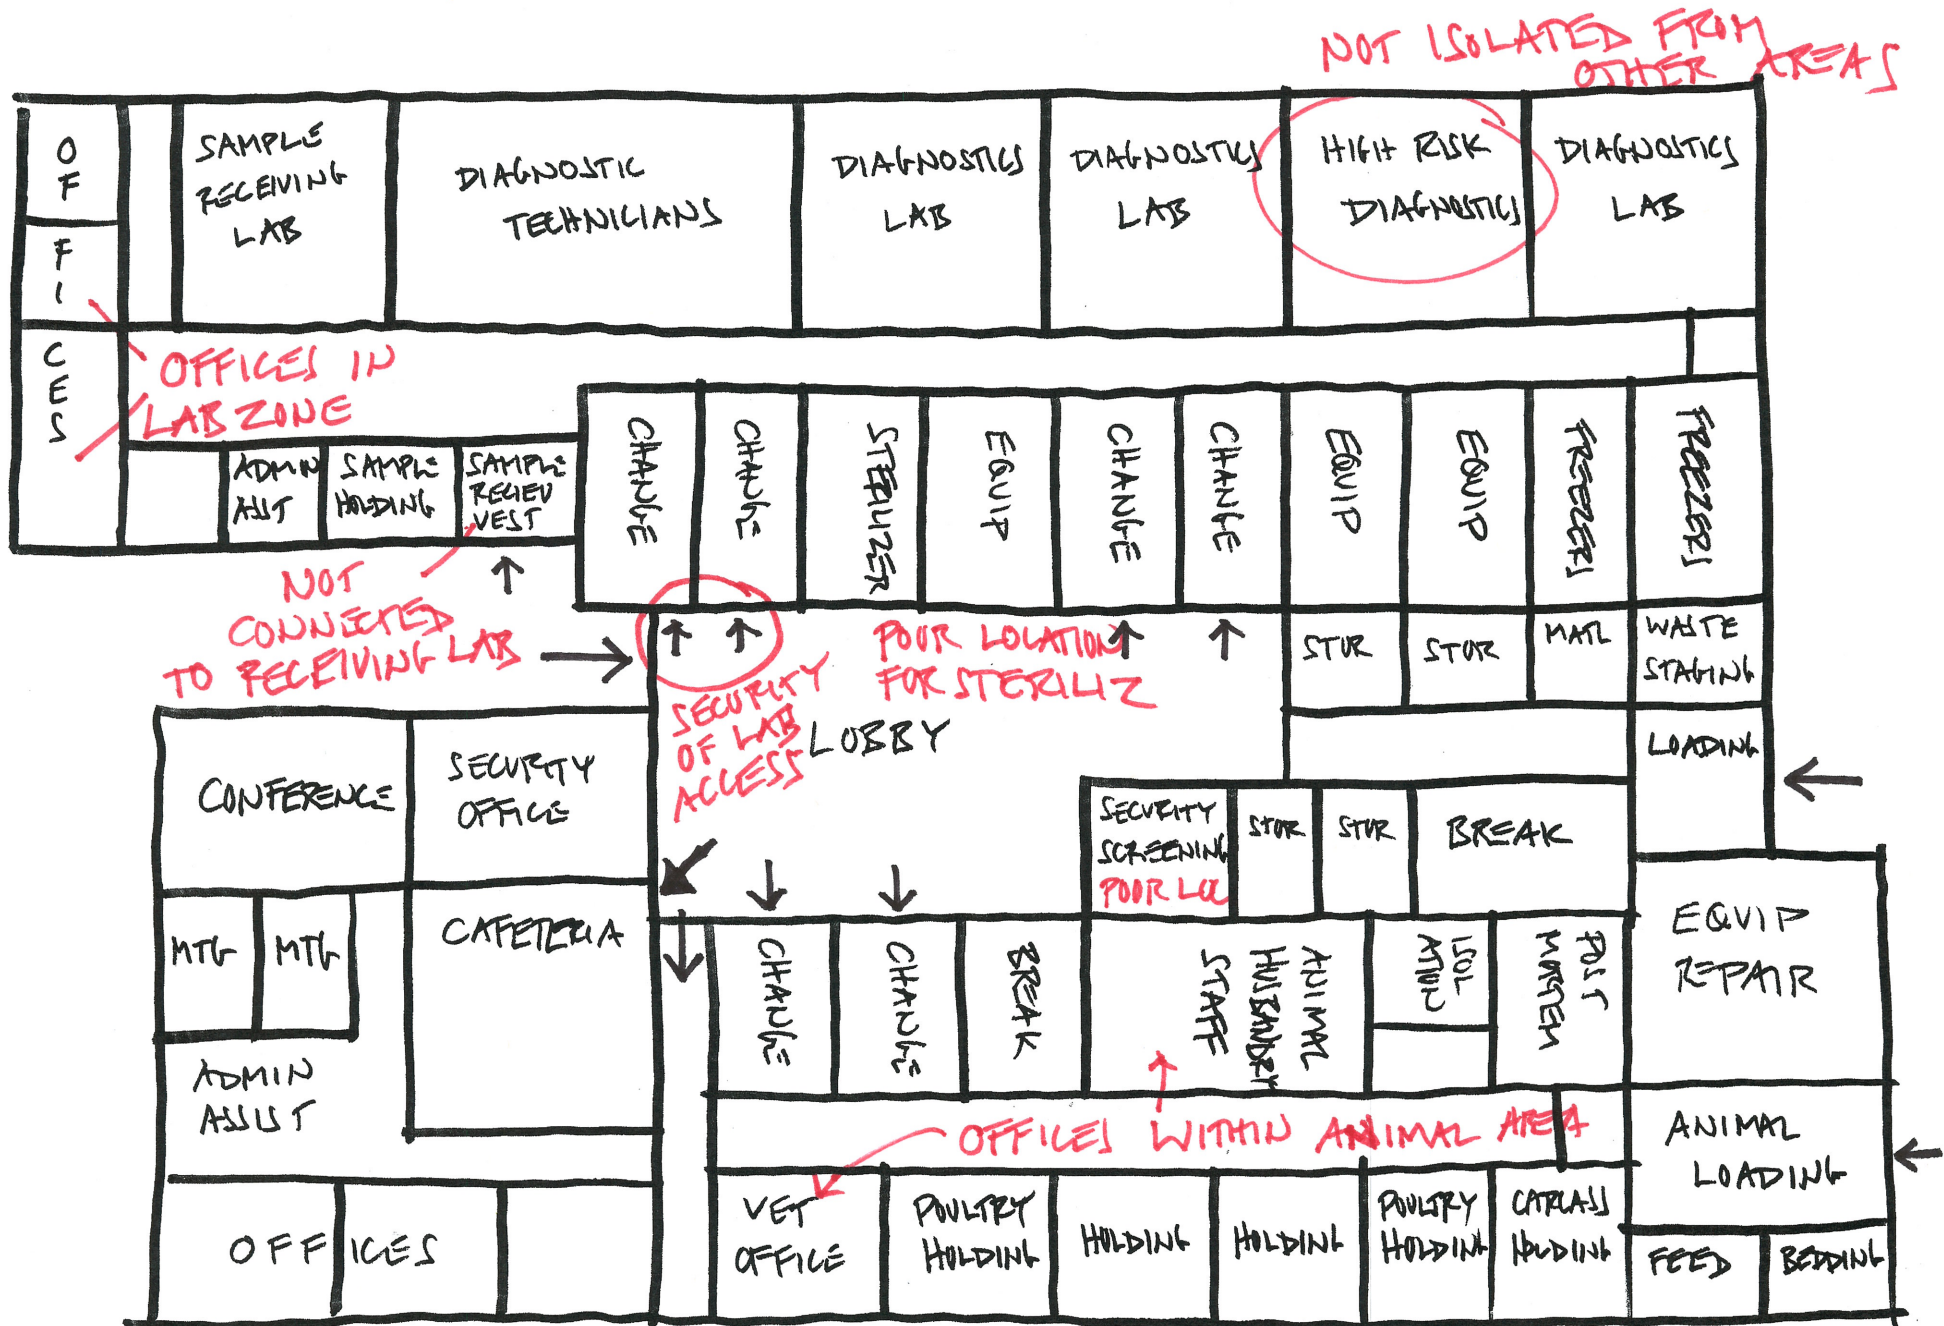 NOT ISOLATED FROM
OTHER AREAS
OF
FI
CES
SAMPLE
RECEIVING
LAB
DIAGNOSTIC
TECHNICIANS
DIAGNOSTICS
LAB
DIAGNOSTICS
LAB
HIGH RISK
DIAGNOSTICS
DIAGNOSTICS
LAB
OFFICES IN
LAB ZONE
ADMIN
ASST
SAMPLE
HOLDING
SAMPLE
RECIEV
VEST
CHANGE
CHANGE
STERILIZER
EQUIP
CHANGE
CHANGE
EQUIP
EQUIP
FREEZERS
FREEZERS
NOT
CONNECTED
TO RECEIVING LAB
SECURITY
OF LAB
ACCESS
POUR LOCATION
FOR STERILIZ
LOBBY
STOR
STOR
MATL
WASTE
STAGING
LOADING
CONFERENCE
SECURITY
OFFICE
SECURITY
SCREENING
POOR LOC
STOR
STOR
BREAK
MTG
MTG
CAFETERIA
CHANGE
CHANGE
BREAK
ANIMAL
HUSBANDRY
STAFF
ISOL
ATION
POST
MORTEM
EQUIP
REPAIR
ADMIN
ASSIST
OFFICES WITHIN ANIMAL AREA
ANIMAL
LOADING
OFFICES
VET
OFFICE
POULTRY
HOLDING
HOLDING
HOLDING
POULTRY
HOLDING
CARCASS
HOLDING
FEED
BEDDING